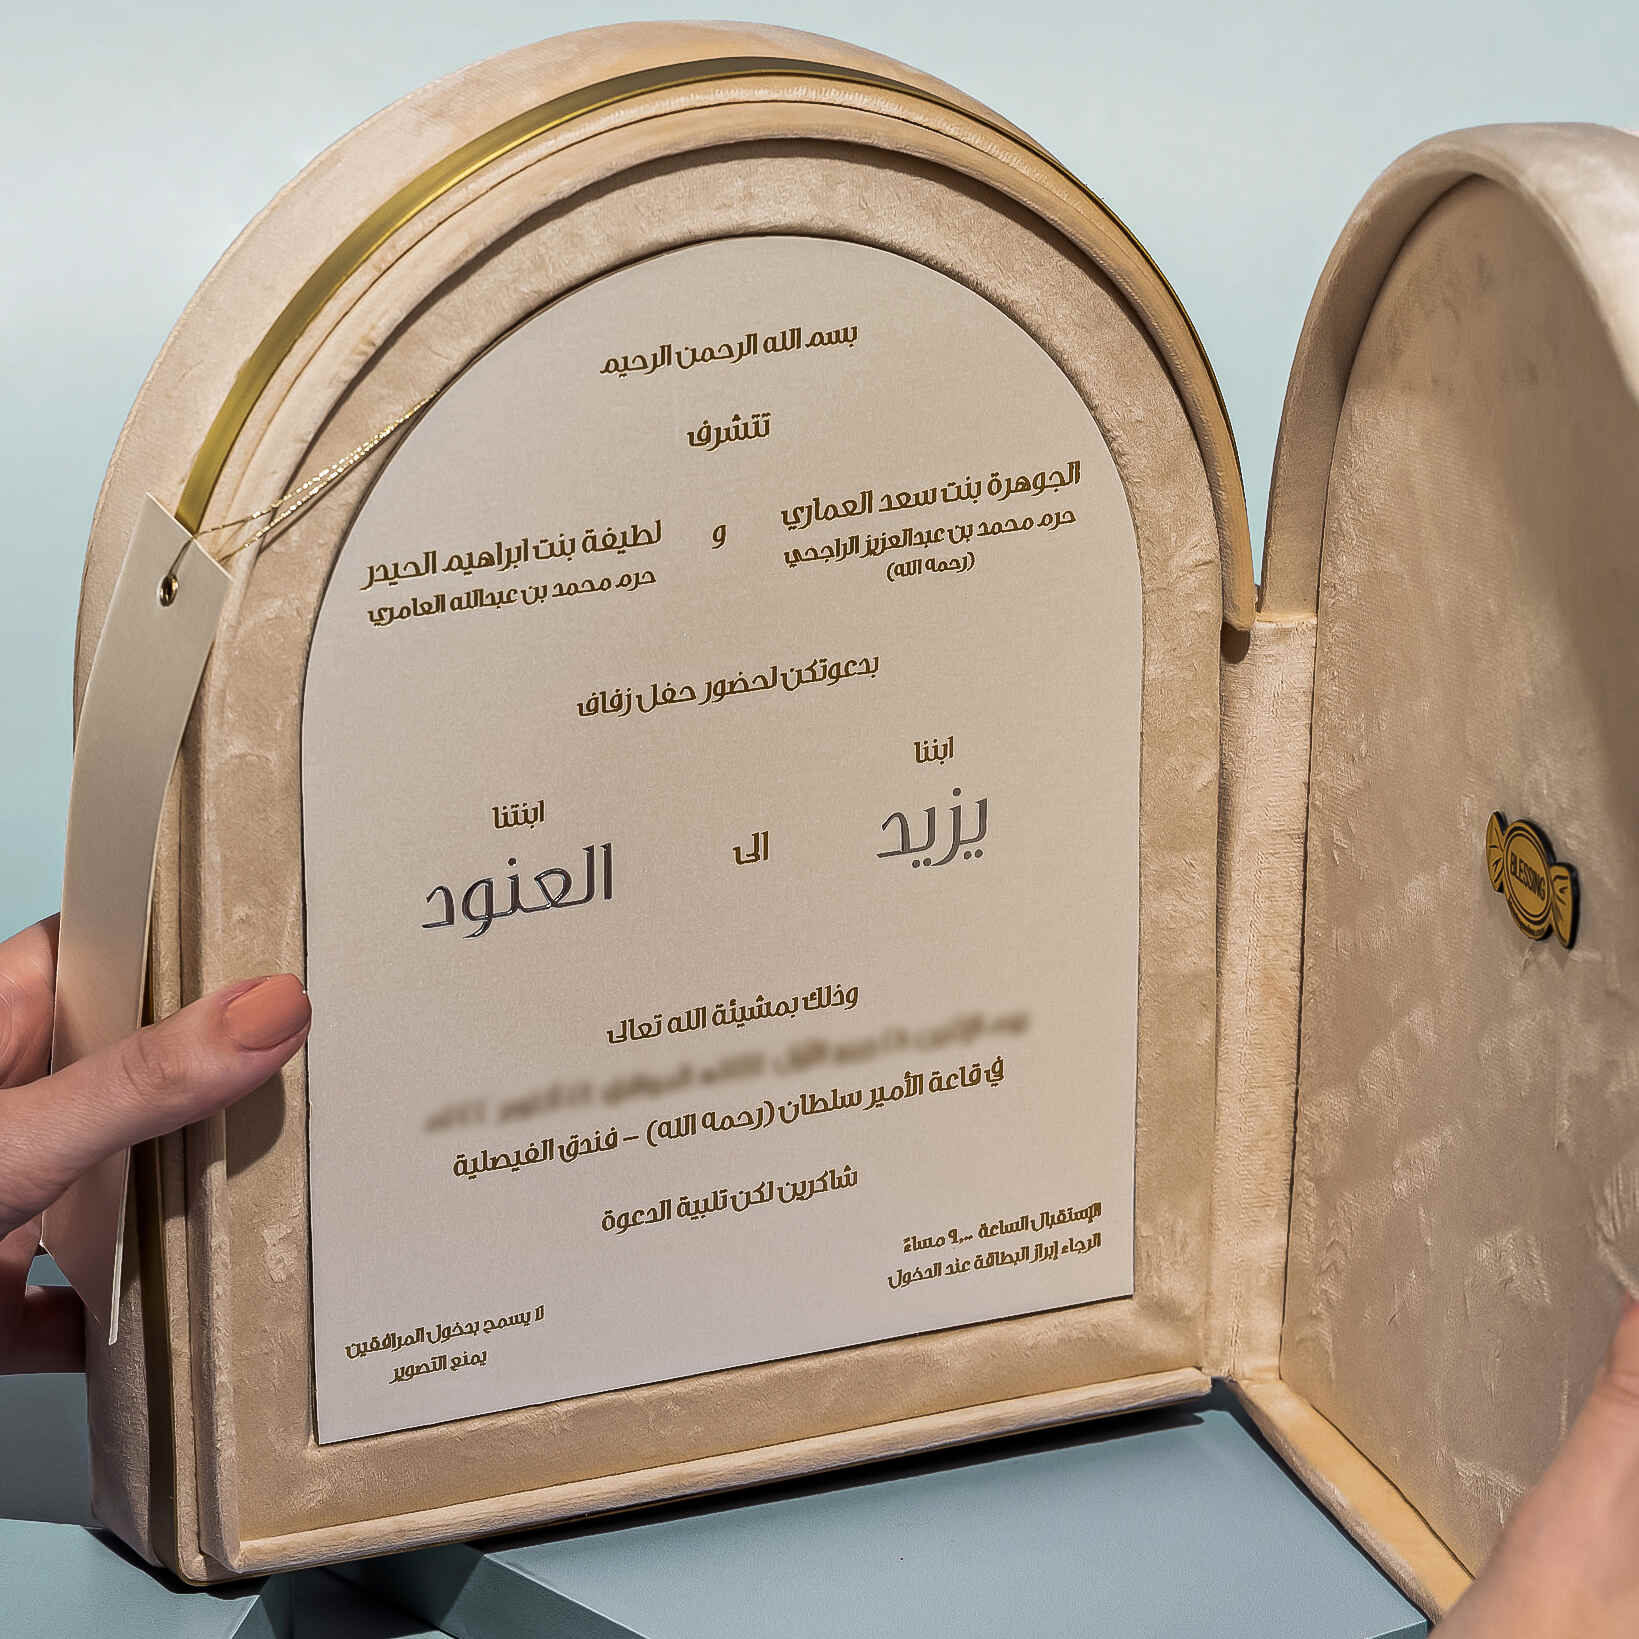 بسم الله الرحمن الرحيم
تتشرف
الجوهرة بنت سعد العماري و لطيفة بنت ابراهيم الحيدر
حرم محمد بن عبدالعزيز الراجحي
حرم محمد بن عبدالله العامري
(رحمه الله)
بدعوتكن لحضور حفل زفاف
ابننا
ابنتنا
يزيد الى العنود
وذلك بمشيئة الله تعالى
في قاعة الأمير سلطان (رحمه الله) - فندق الفيصلية
شاكرين لكن تلبية الدعوة
الإستقبال الساعة ٩,٠٠ مساءً
الرجاء إبراز البطاقة عند الدخول
لا يسمح بدخول المرافقين
يمنع التصوير
BLESSING